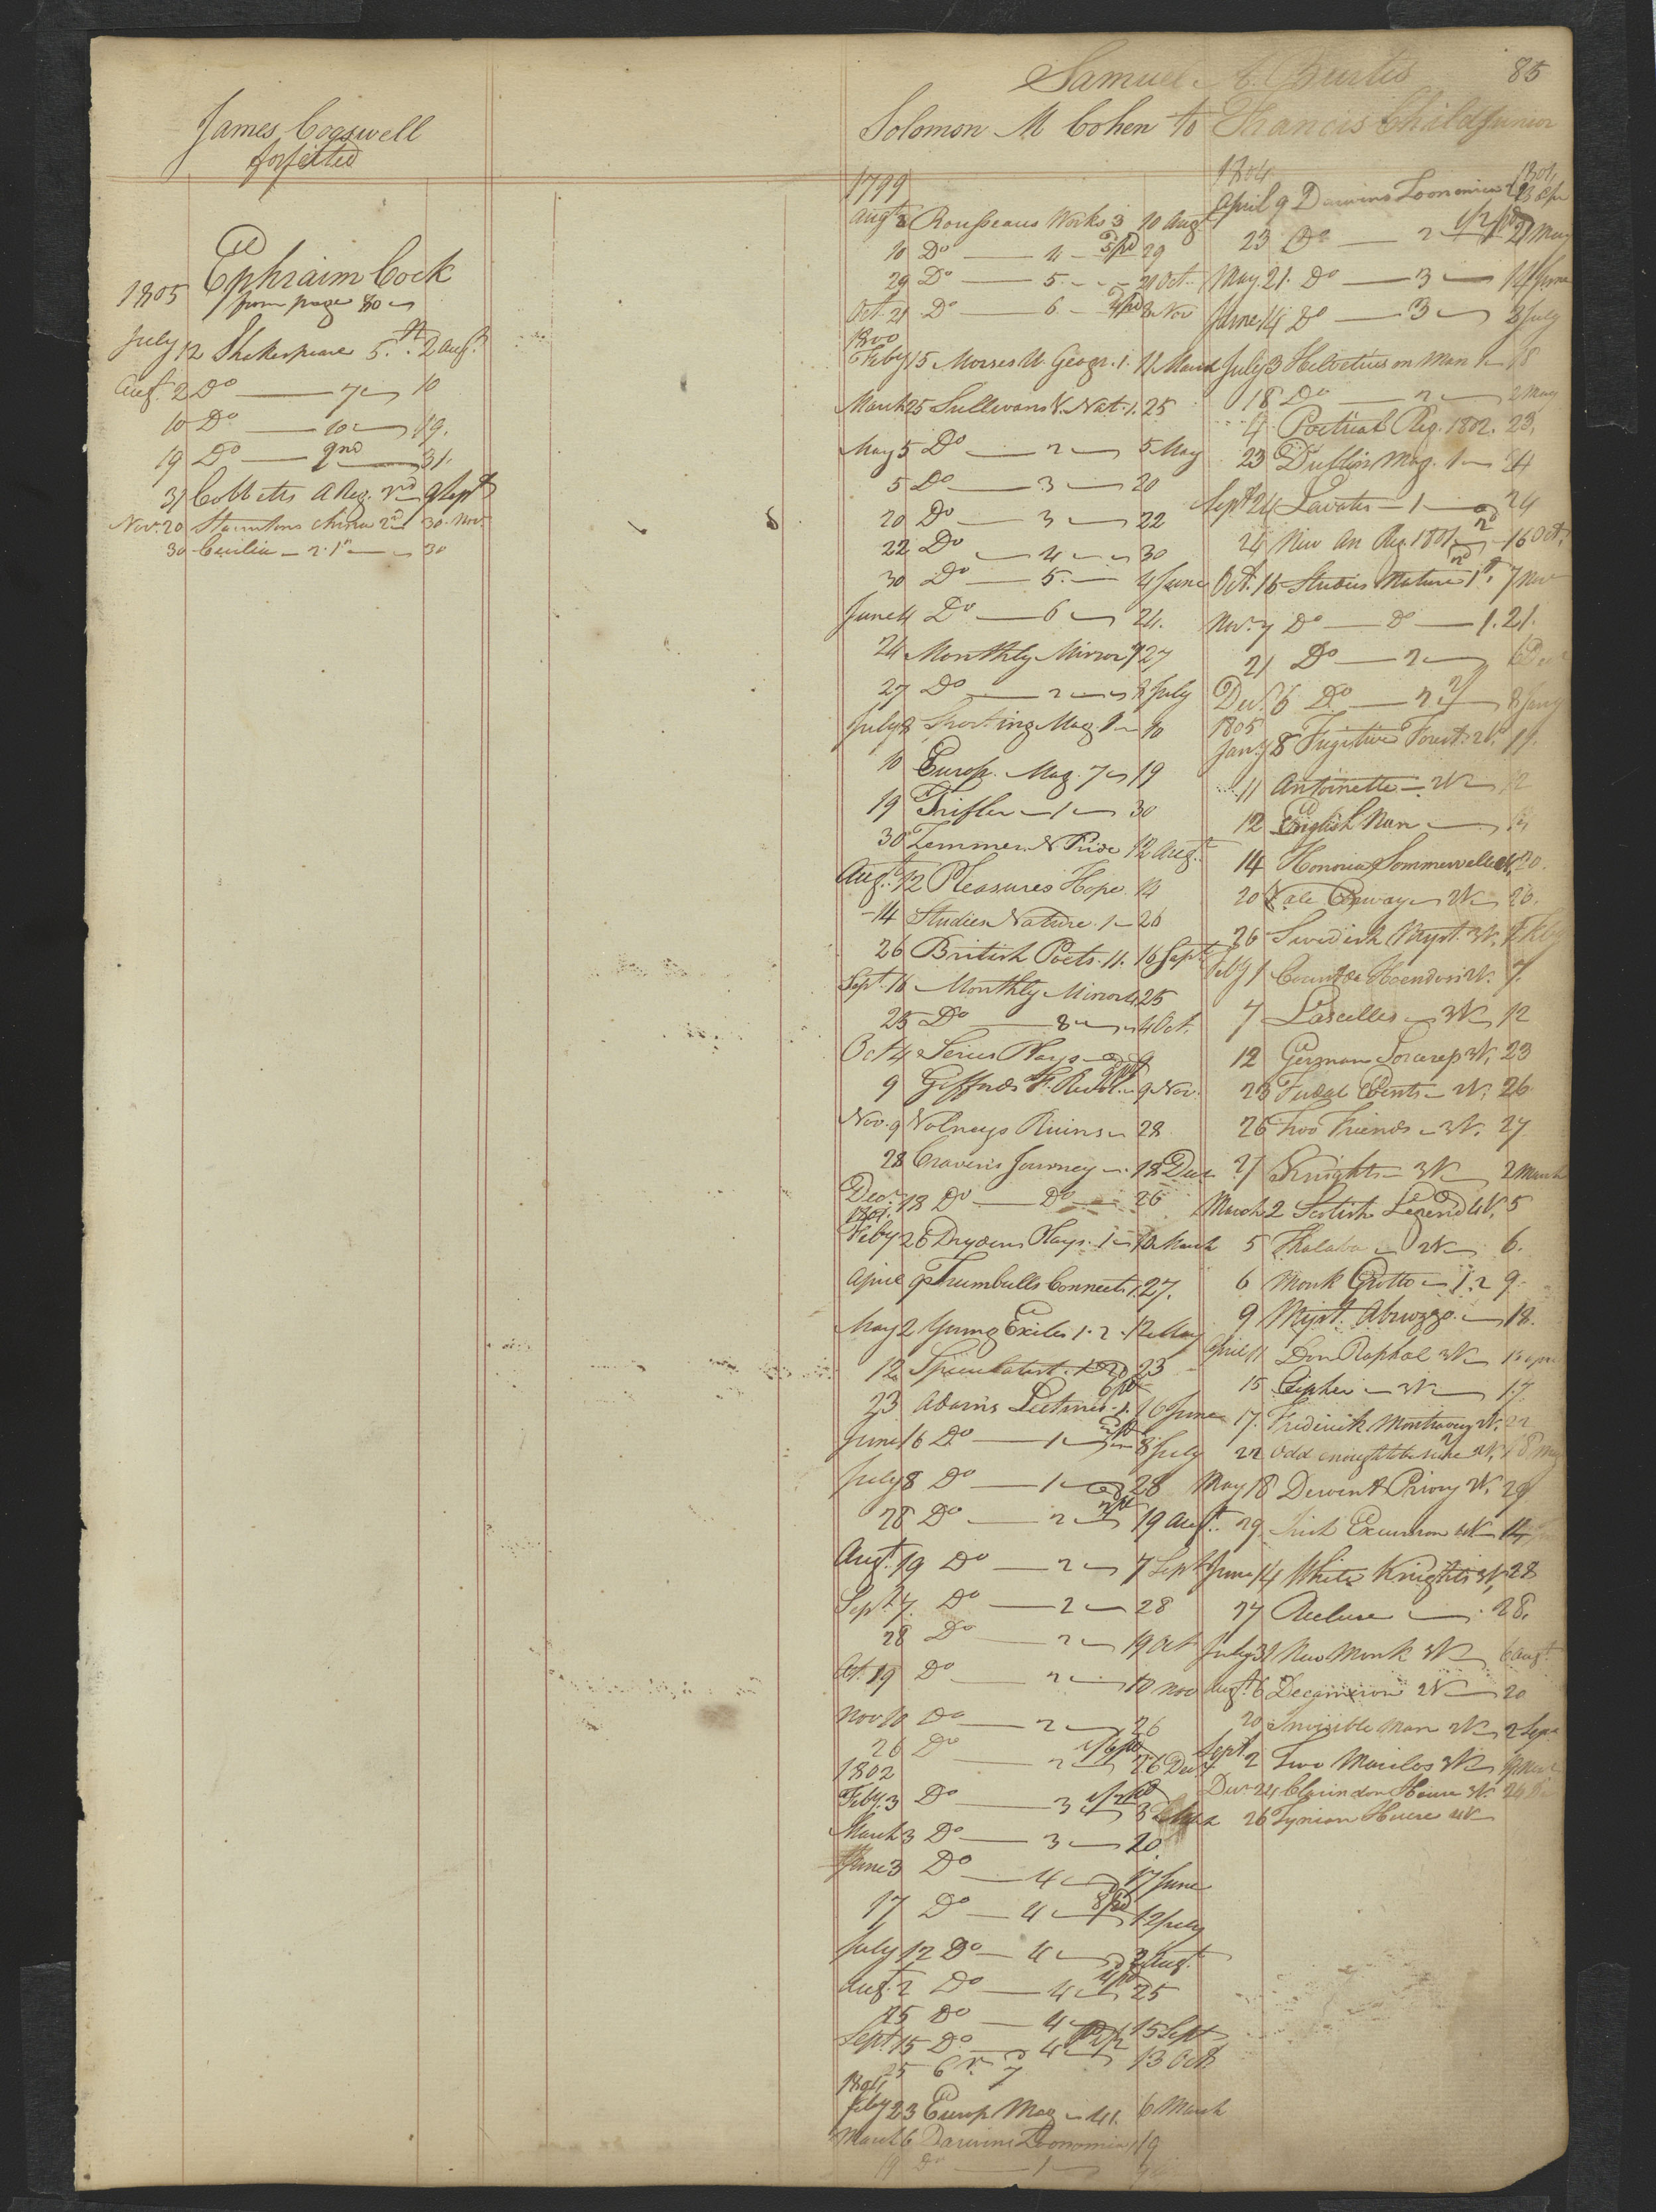 85
James Cogswell
forfeited
Ephraim Cock
1805 from page 80
July 12 Shakespeare 5. 2 Augt.
Augt. 2 Do 7 10
10 Do 10 19.
19 Do 9nd 31.
31 Cobbetts A Reg. 2nd 9 Sept
Nov. 20 Stauntons China 2d 30. Nov.
30 Cecilia 2. 1 30
Samuel A. Burtis
Solomon M Cohen to Francis Childs Junior
1799
Augt 8 Rousseaus Works 3 10 Augt
10 Do 4 29
29 Do 5 21 Oct.
Oct. 21 Do 6 8 Nov
1800
Feby 15 Morses U. Geogr. 1. 11 March
March 25 Sullivans V. Nat. 1. 25
May 5 Do 2 5 May
5 Do 3 20
20 Do 3 22
22 Do 4 30
30 Do 5 4 June
June 4 Do 6 24.
24 Monthly Mirror 27
27 Do 2 8 July
July 8 Sporting Mag 1 10
10 Europ. Mag. 7 19
19 Trifler 1 30
30 Zimmer. N Pride 12 Augt.
Augt. 12 Pleasures Hope 14
14 Studies Nature. 1 26
26 British Poets. 11. 16 Sept
Sept. 16 Monthly Mirror 4 25
25 Do 8 4 Oct.
Oct 4 Series Plays 9
9 Giffords F. Revol. 9 Nov.
Nov. 9 Volneys Ruins 28
28 Cravens Journey 18 Decr
Decr. 18 Do Do 26
1801.
Feby 26 Drydens Plays. 1 10 March
April 9 Trumbulls Connect. 1. 27.
May 2 Young Exiles 1. 2. 12 May
12 Speculatist. 1. 23
23 Adams Lectures. 1. 16 June
June 16 Do 1 8 July
July 8 Do 1 28
28 Do 2 19 Augt.
Augt. 19 Do 2 7 Sept
Sept. 7. Do 2 28
28 Do 2 19 Oct
Oct. 19 Do 2 10 Nov
Nov 10 Do 2 26
26 Do 2 26 Decr
1802
Feby. 3 Do 3 3
March 3 Do 3 20
June 3 Do 4 17 June
17 Do 4 12 July
July 12 Do 4 2 Augt.
Augt. 2 Do 4 25
25 Do 4 15 Sept
Sept. 15 Do 4 13 Oct.
25 6 7
1804
Feby 23 Europ Mag 41. 6 March
March 6 Darwins Zoonomia 19
19 Do 1
1804
April 9 Darwins Zoonomia 23 Apr
23 Do 2 21 May
May 21. Do 3 14 June
June 14 Do 3 3 July
July 3 Helvetius on Man 1 18
18 Do 2 2 May
4 Poetical Reg. 1802. 23,
23 Dublin Mag. 1 24
Sept 24 Lavater 1 24
24 New An Reg. 1801 16 Oct.
Oct. 16 Studies Nature 1st. 7 Nov
Nov. 7 Do Do 1. 21.
21 Do 2 6 Dec
Decr. 6 Do 2. 8 Jany
1805
Jany 8 Fugitive Forest. 2V. 11.
11 Antoinette 2V 12
12 English Nun 14
14 Honoria Sommerville 4V, 20.
20 Vale Conway 2V 26.
26 Swedish Myst. 3V, 1 Feby
Feby 1 Count de Hoendorn 2V. 7.
7 Lascelles 3V 12
12 German Sorceress 3V, 23
23 Fudal Events 2V. 26
26 Two Friends 3V. 27
27 Knights 3V 2 March
March 2 Scotish Legend 4V. 5
5 Thalaba 2V 6.
6 Monk Grotto 1. 2 9
9 Myst. Abruzzo. 18.
April 11 Don Raphael 3V 15 Apr
15 Cipher 3V 17.
17. Frederick Montravers 2V. 22
22 Odd enough to be sure 2V, 18 May
May 18 Derwent Priory 2V, 29
29 Irish Excursion 4V 14
June 14 White Knights 3V, 28
27 Recluse 28.
July 31 New Monk 3V 6 Augt
Augt. 6 Decameron 2V 20
20 Invisible Man 2V 2 Sept
Sept 2 Two Marilos 3V
Decr 24 Clarindon House 3V. 26 De
26 Tynian House 4V